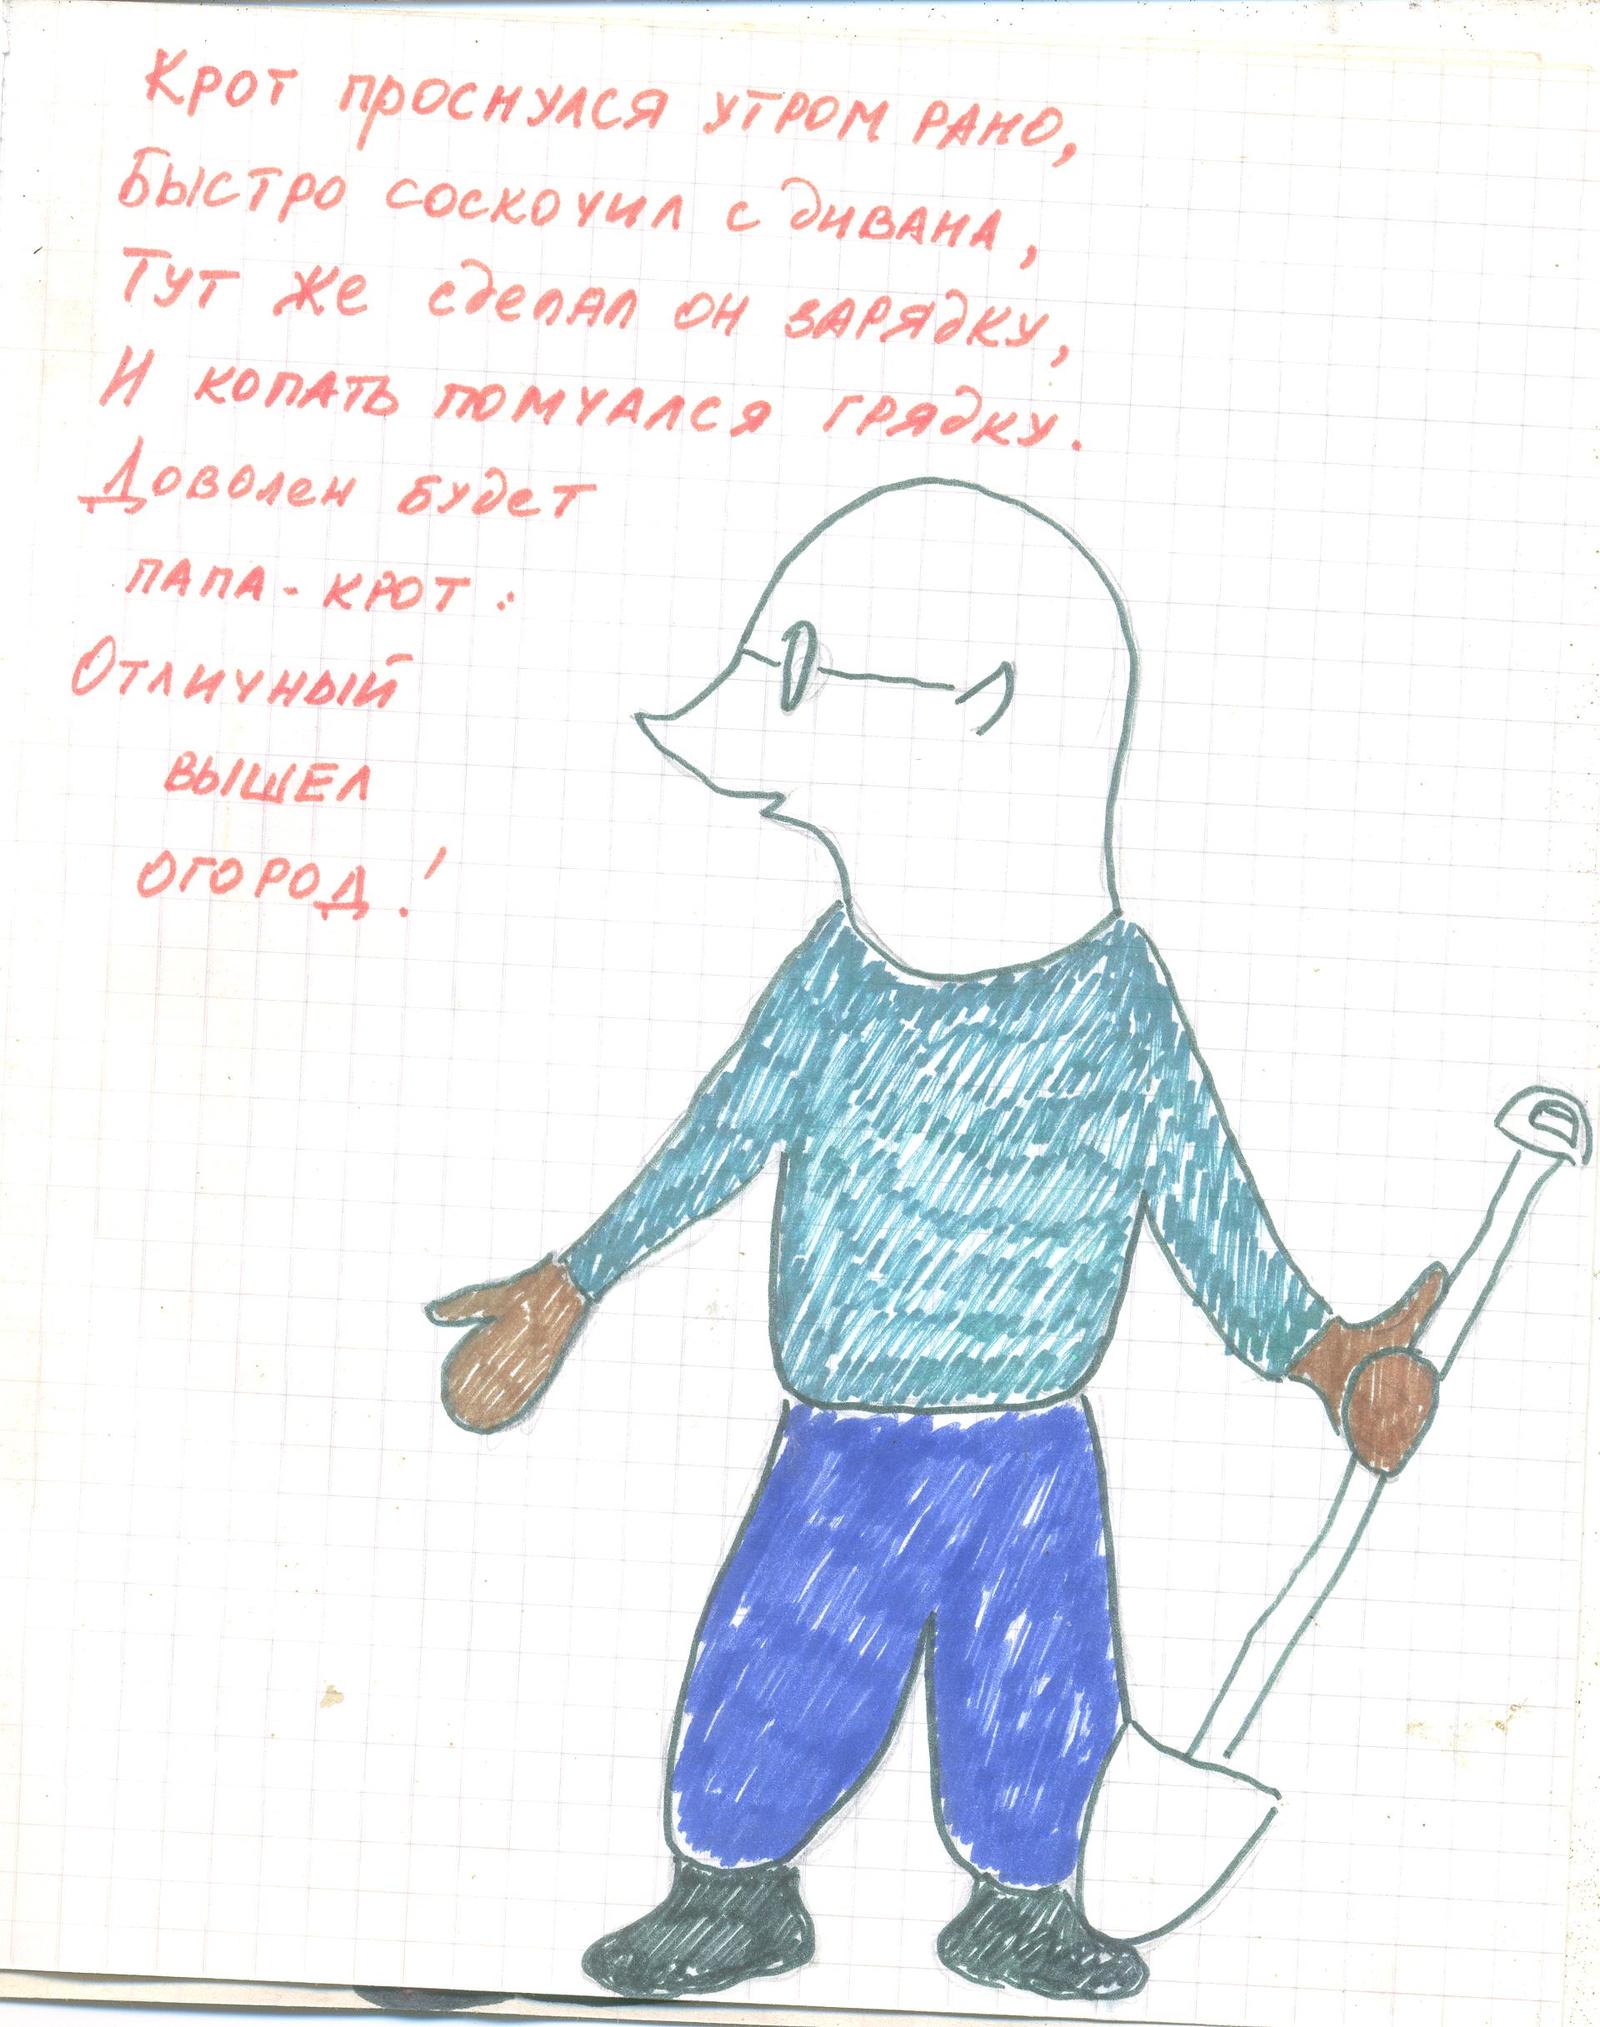 Крот проснулся утром рано,
Быстро соскочил с дивана,
Тут же сделал он зарядку,
И копать помчался грядку.
Доволен будет
папа-крот:
Отличный
вышел
огород!